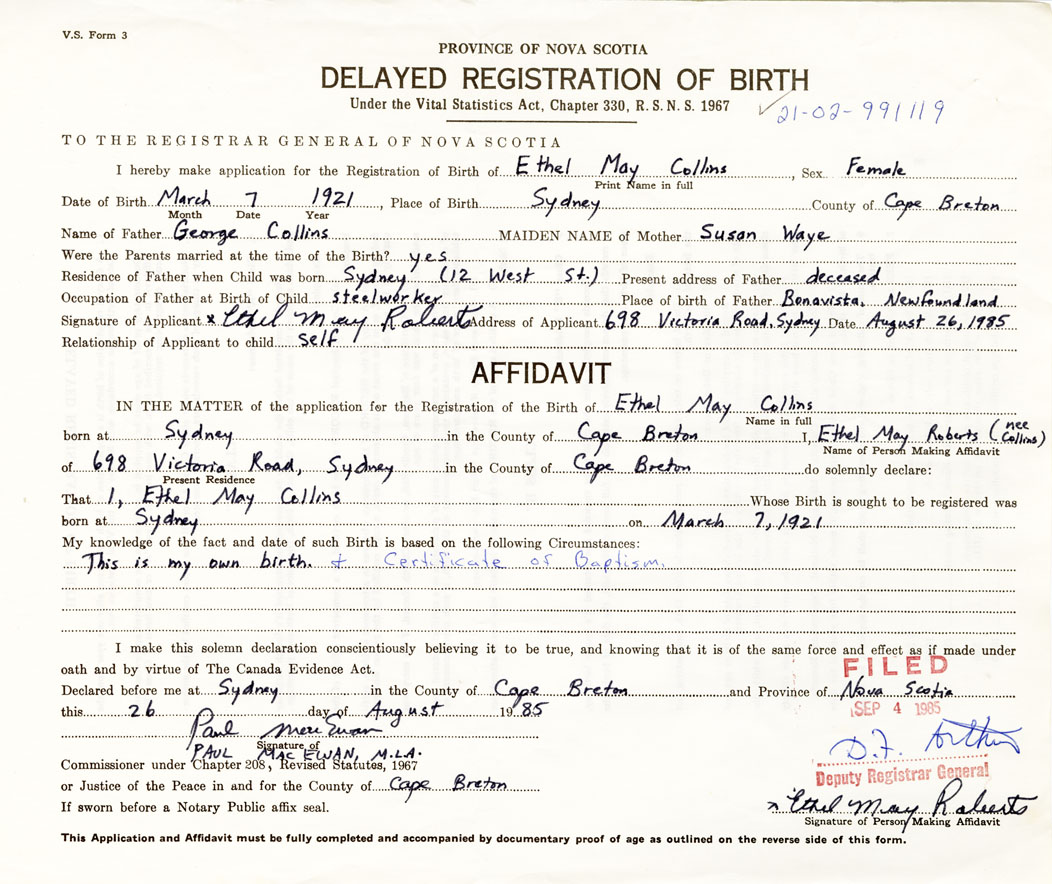 V.S. Form 3
PROVINCE OF NOVA SCOTIA
DELAYED REGISTRATION OF BIRTH
Under the Vital Statistics Act, Chapter 330, R.S.N.S. 1967
21-02-991119
TO THE REGISTRAR GENERAL OF NOVA SCOTIA
I hereby make application for the Registration of Birth of Ethel May Collins, Sex Female
Print Name in full
Date of Birth March 7 1921, Place of Birth Sydney County of Cape Breton
Month Date Year
Name of Father George Collins MAIDEN NAME of Mother Susan Waye
Were the Parents married at the time of the Birth? yes
Residence of Father when Child was born Sydney (12 West St.) Present address of Father deceased
Occupation of Father at Birth of Child steelworker Place of birth of Father Bonavista, Newfoundland
Signature of Applicant x Ethel May Roberts Address of Applicant 698 Victoria Road, Sydney Date August 26, 1985
Relationship of Applicant to child self
AFFIDAVIT
IN THE MATTER of the application for the Registration of the Birth of Ethel May Collins
Name in full
born at Sydney in the County of Cape Breton I, Ethel May Roberts (nee Collins)
Name of Person Making Affidavit
of 698 Victoria Road, Sydney in the County of Cape Breton do solemnly declare:
Present Residence
That I, Ethel May Collins Whose Birth is sought to be registered was
born at Sydney on March 7, 1921
My knowledge of the fact and date of such Birth is based on the following Circumstances:
This is my own birth. & Certificate of Baptism.
I make this solemn declaration conscientiously believing it to be true, and knowing that it is of the same force and effect as if made under
oath and by virtue of The Canada Evidence Act.
FILED
Declared before me at Sydney in the County of Cape Breton and Province of Nova Scotia
SEP 4 1985
this 26 day of August 1985
Paul MacEwan
Signature of
PAUL MAC EWAN, M.L.A.
D.F. Arthur
Commissioner under Chapter 208, Revised Statutes, 1967
Deputy Registrar General
or Justice of the Peace in and for the County of Cape Breton
x Ethel May Roberts
If sworn before a Notary Public affix seal.
Signature of Person Making Affidavit
This Application and Affidavit must be fully completed and accompanied by documentary proof of age as outlined on the reverse side of this form.